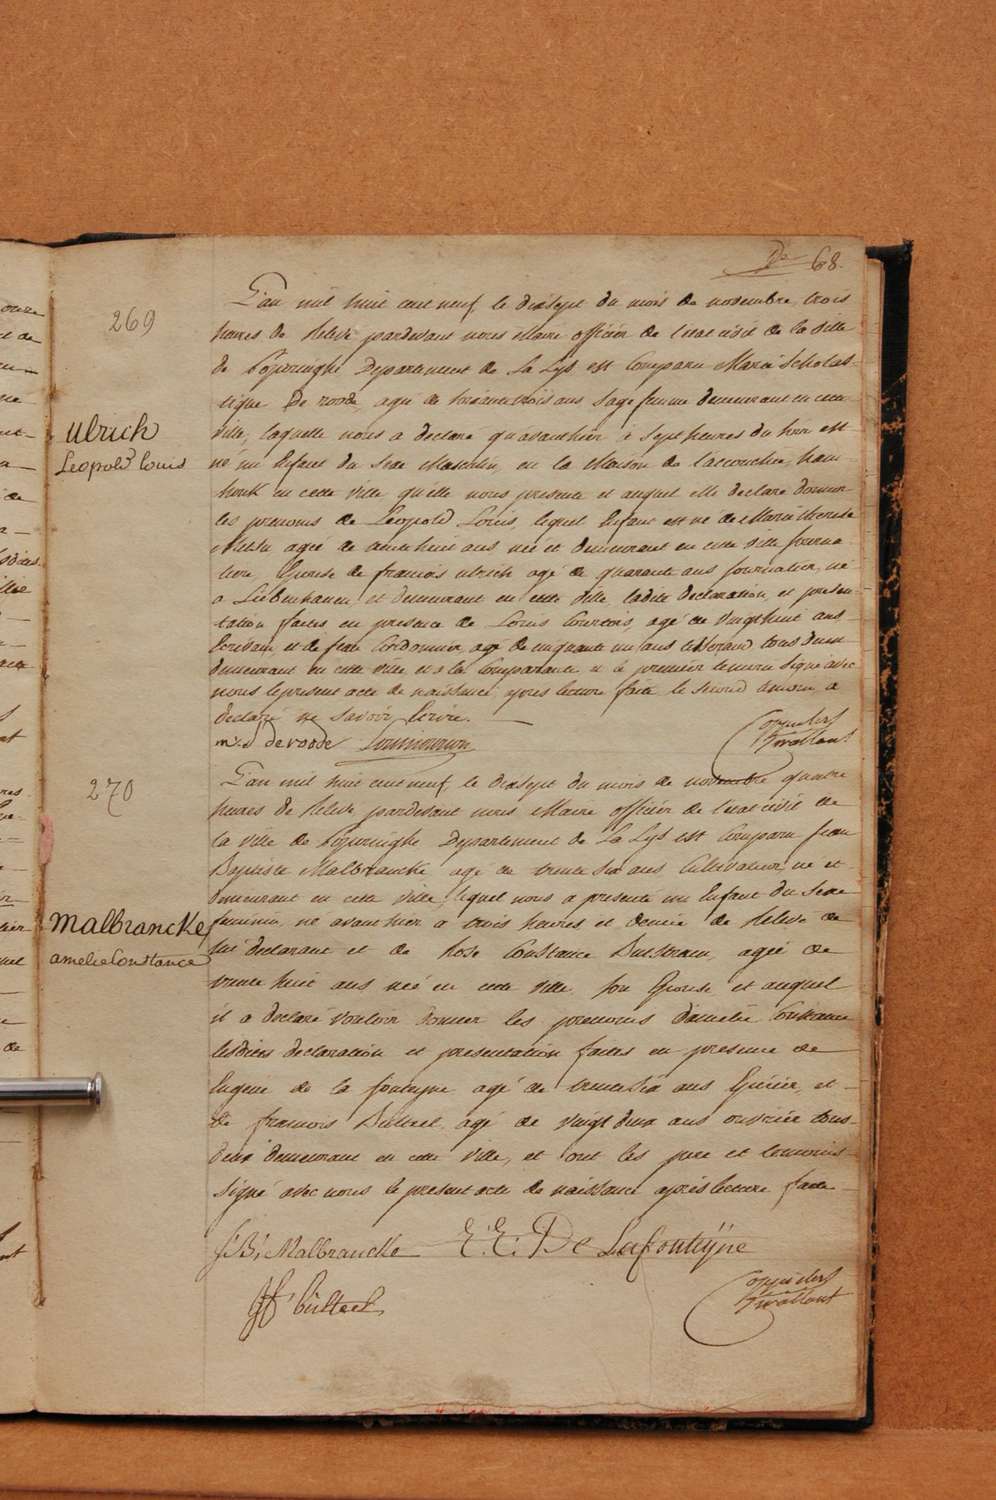 De 68.
269
L'an mil huit cent neuf le dixsept du mois de novembre, trois
heures de relevé pardevant nous Maire officier de l'etat civil de la ville
de Poperinghe Departement de La Lys est Comparu Marie Scholas-
tique De roode, agée de soixante trois ans Sage femme demeurant en cette
ville, laquelle nous a declaré qu'avanthier à Sept heures du soir est
Ulrich
Leopold Louis
né un Enfant du Sexe Masculin, en la Maison de l'accouchée,
en cette ville qu'elle nous presente et auquel elle declare donner
les prenoms de Leopold Louis, lequel Enfant est né de Marie therese
agée de trente huit ans née et demeurant en cette ville journa
liere, Epouse de francois ulrich agé de quarante ans journalier, né
a et demeurant en cette ville, ladite declaration et presen-
tation faites en presence de Louis Courtois, agé de vingt huit ans
Ecrivain, et de jean Cordonnier agé de cinquante un ans tisserand tous deux
demeurant en cette ville et a la Comparante et le premier temoin signé avec
nous le present acte de naissance apres lecture faite le second temoin a
declaré ne savoir Ecrire.
m: S deroode
270
L'an mil huit cent neuf le dixsept du mois de novembre quatre
heures de relevé pardevant nous Maire officier de l'etat civil de
la ville de Poperinghe Departement de La Lys est Comparu jean
Baptiste Malbrancke agé de trente six ans Cultivateur, né et
demeurant en cette ville, lequel nous a presenté un Enfant du Sexe
Malbrancke
amelie Constance
feminin, né avant hier a trois heures et demie de relevé de
lui declarant et de Rose Constance agée de
trente huit ans née en cette ville son Epouse et auquel
il a declaré vouloir donner les prenoms d'amelie Constance
lesdites declaration et presentation faites en presence de
Eugene de la fonteyne agé de trente six ans Epicier, et
de francois Bulteel agé de vingt deux ans ouvrier tous
deux demeurant en cette ville, et ont les pere et temoins
signé avec nous le present acte de naissance apres lecture faite
J: B: Malbrancke E: E: De Lafonteÿne
Bulteel